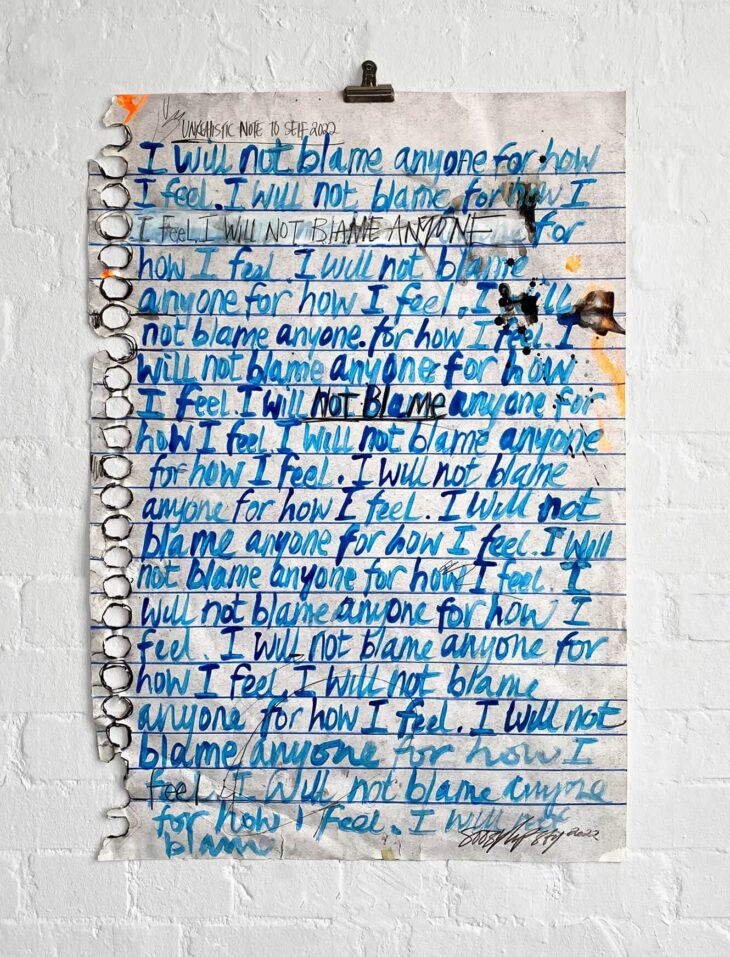 UNREALISTIC NOTE TO SELF 2022
I will not blame anyone for how
I feel. I will not blame for how I
I FEEL. I WILL NOT BLAME ANYONE for
how I feel. I will not blame
anyone for how I feel. I will
not blame anyone. for how I feel. I
will not blame anyone for how
I feel. I will NOT BLAME anyone for
how I feel. I will not blame anyone
for how I feel. I will not blame
anyone for how I feel. I will not
blame anyone for how I feel. I will
not blame anyone for how I feel. I
will not blame anyone for how I
feel. I will not blame anyone for
how I feel. I will not blame
anyone for how I feel. I will not
blame anyone for how I
feel. I will not blame anyone
for how I feel. I will not
blame
2022